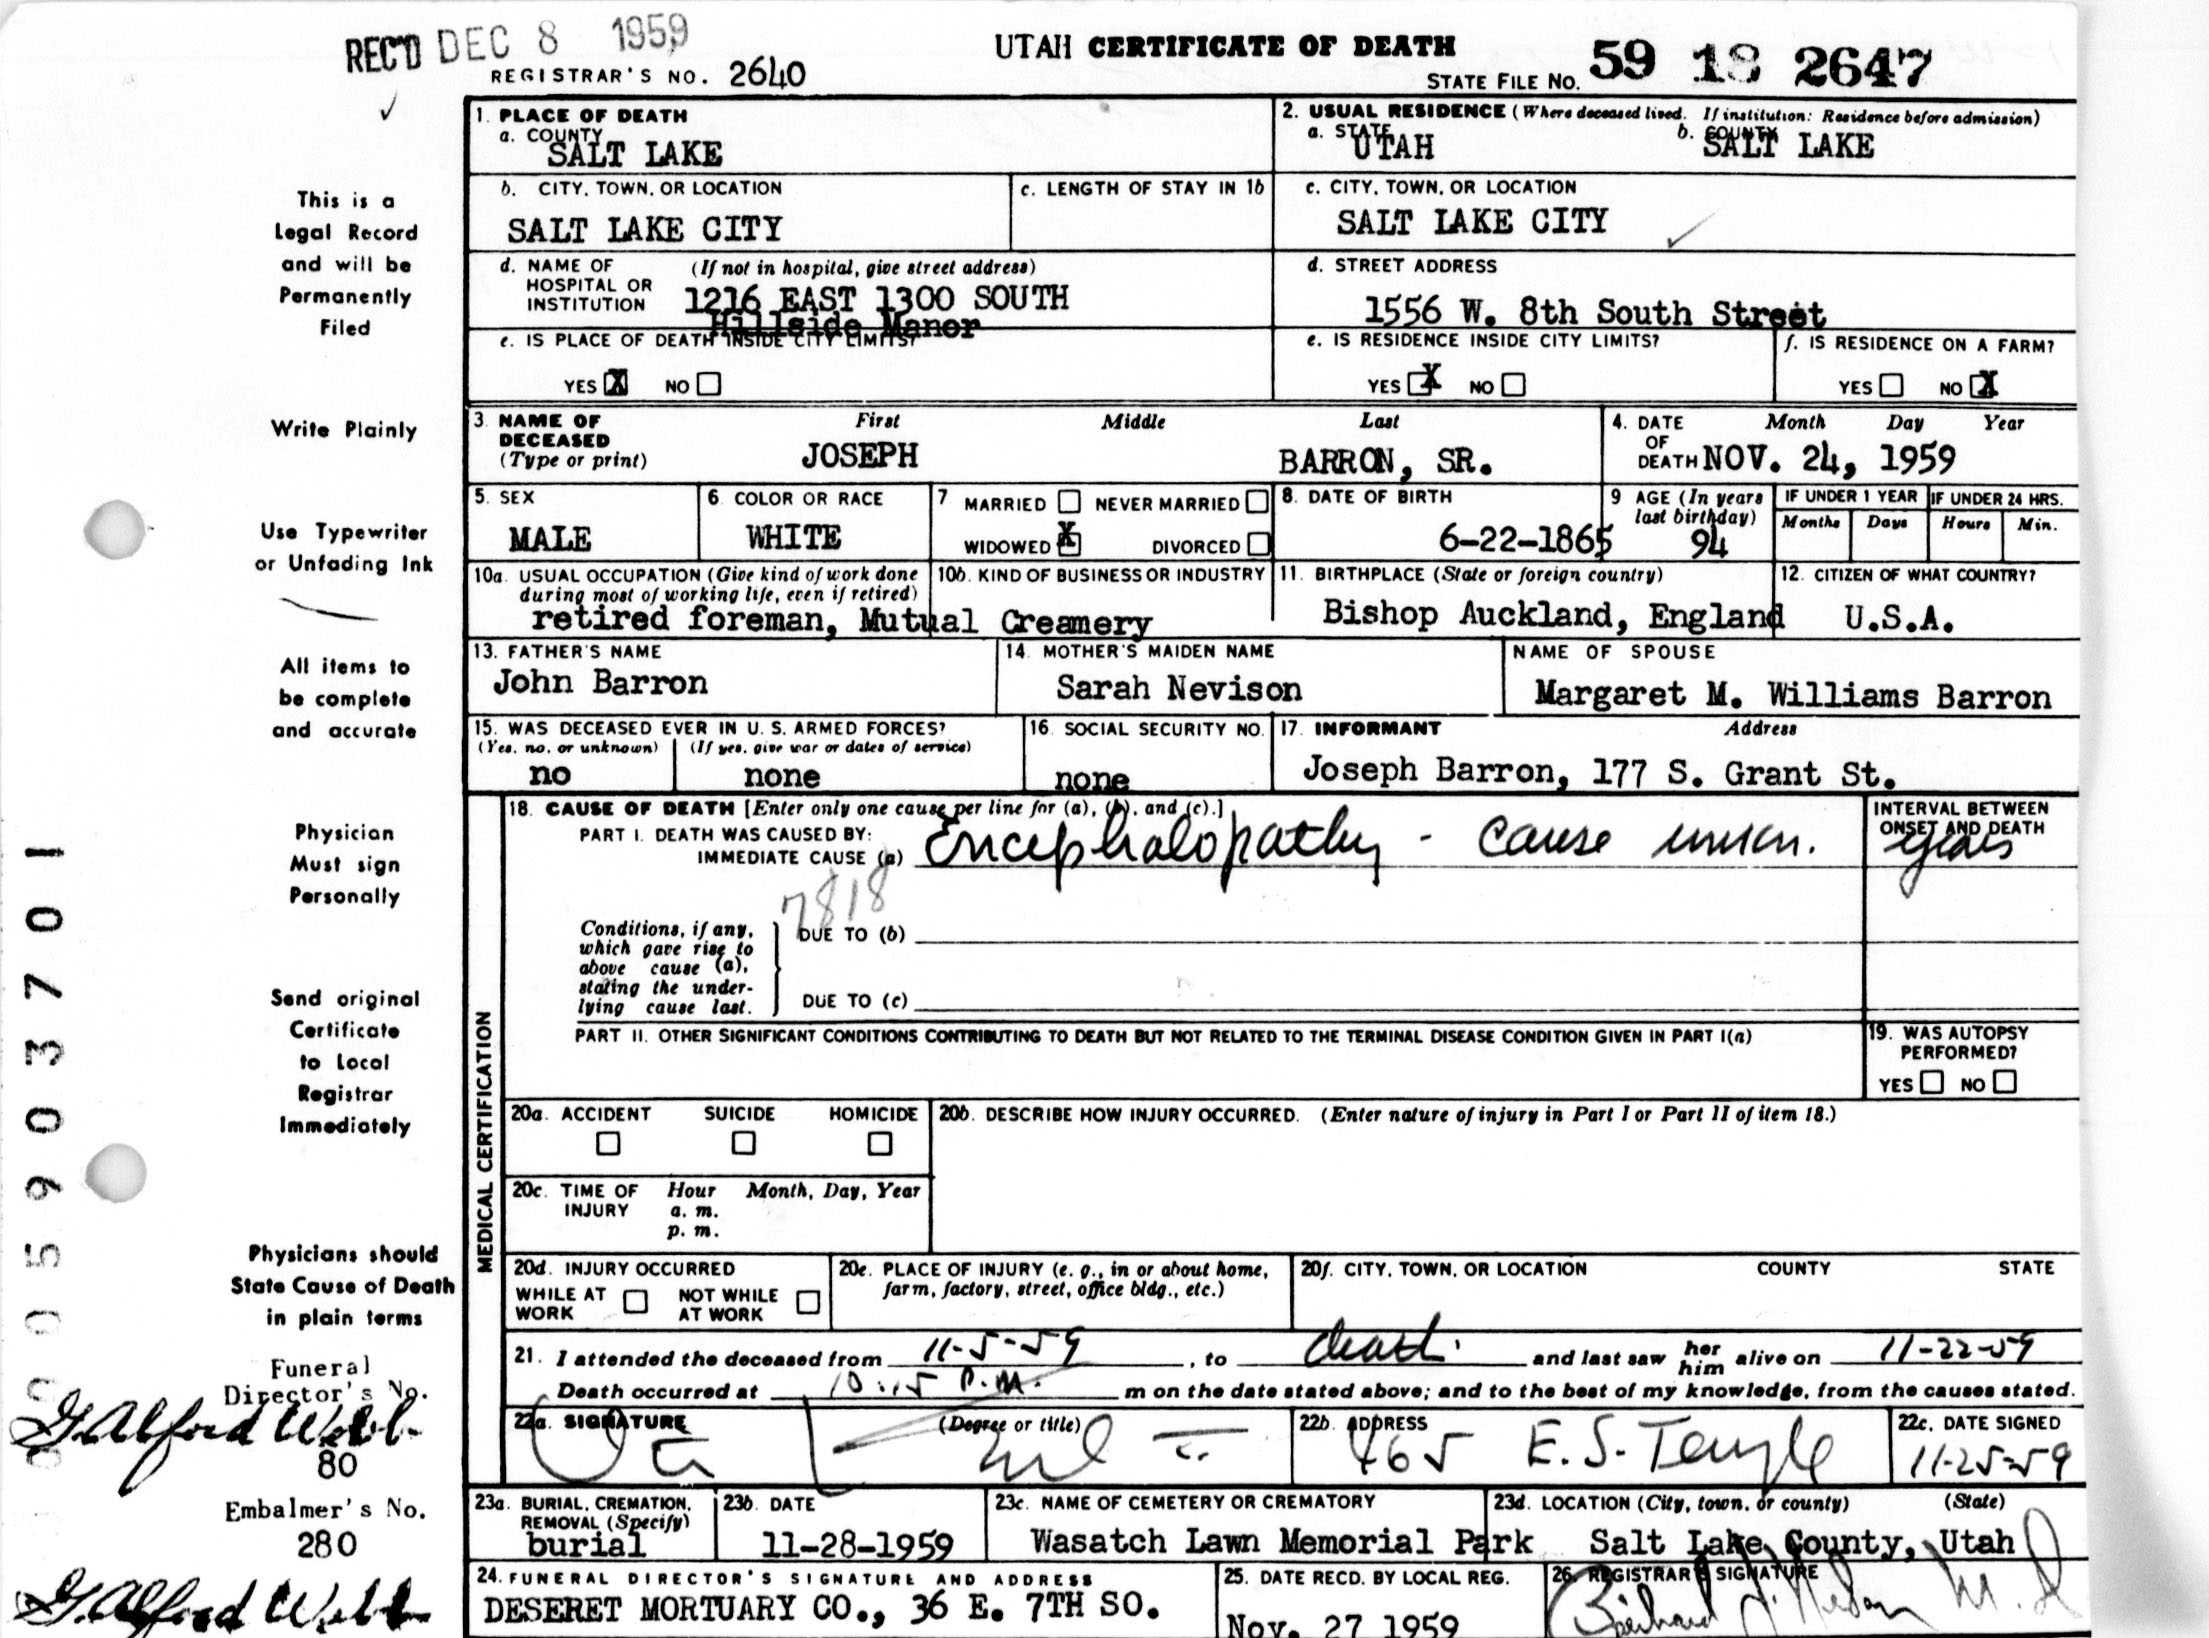 REC'D DEC 8 1959
UTAH CERTIFICATE OF DEATH
REGISTRAR'S NO. 2640
STATE FILE NO. 59 18 2647
1. PLACE OF DEATH
a. COUNTY
SALT LAKE
2. USUAL RESIDENCE (Where deceased lived. If institution: Residence before admission)
a. STATE b. COUNTY
UTAH SALT LAKE
b. CITY, TOWN, OR LOCATION
SALT LAKE CITY
c. LENGTH OF STAY IN 1b
c. CITY, TOWN, OR LOCATION
SALT LAKE CITY
d. NAME OF HOSPITAL OR INSTITUTION (If not in hospital, give street address)
1216 EAST 1300 SOUTH
Hillside Manor
d. STREET ADDRESS
1556 W. 8th South Street
e. IS PLACE OF DEATH INSIDE CITY LIMITS?
YES X NO
e. IS RESIDENCE INSIDE CITY LIMITS?
YES X NO
f. IS RESIDENCE ON A FARM?
YES NO X
3. NAME OF DECEASED (Type or print)
First Middle Last
JOSEPH BARRON, SR.
4. DATE OF DEATH Month Day Year
NOV. 24, 1959
5. SEX
MALE
6. COLOR OR RACE
WHITE
7 MARRIED NEVER MARRIED
WIDOWED X DIVORCED
8. DATE OF BIRTH
6-22-1865
9 AGE (In years last birthday)
94
IF UNDER 1 YEAR IF UNDER 24 HRS.
Months Days Hours Min.
10a. USUAL OCCUPATION (Give kind of work done during most of working life, even if retired)
10b. KIND OF BUSINESS OR INDUSTRY
retired foreman, Mutual Creamery
11. BIRTHPLACE (State or foreign country)
Bishop Auckland, England
12. CITIZEN OF WHAT COUNTRY?
U.S.A.
13. FATHER'S NAME
John Barron
14. MOTHER'S MAIDEN NAME
Sarah Nevison
NAME OF SPOUSE
Margaret M. Williams Barron
15. WAS DECEASED EVER IN U. S. ARMED FORCES?
(Yes, no, or unknown) (If yes, give war or dates of service)
no none
16. SOCIAL SECURITY NO.
none
17. INFORMANT Address
Joseph Barron, 177 S. Grant St.
MEDICAL CERTIFICATION
18. CAUSE OF DEATH [Enter only one cause per line for (a), (b), and (c).]
PART I. DEATH WAS CAUSED BY:
IMMEDIATE CAUSE (a) Encephalopathy - cause unkn.
INTERVAL BETWEEN ONSET AND DEATH
years
7818
Conditions, if any, which gave rise to above cause (a), stating the underlying cause last.
DUE TO (b)
DUE TO (c)
PART II. OTHER SIGNIFICANT CONDITIONS CONTRIBUTING TO DEATH BUT NOT RELATED TO THE TERMINAL DISEASE CONDITION GIVEN IN PART I(a)
19. WAS AUTOPSY PERFORMED?
YES NO
20a. ACCIDENT SUICIDE HOMICIDE
20b. DESCRIBE HOW INJURY OCCURRED. (Enter nature of injury in Part I or Part II of item 18.)
20c. TIME OF INJURY Hour Month, Day, Year
a. m.
p. m.
20d. INJURY OCCURRED
WHILE AT WORK NOT WHILE AT WORK
20e. PLACE OF INJURY (e. g., in or about home, farm, factory, street, office bldg., etc.)
20f. CITY, TOWN, OR LOCATION COUNTY STATE
21. I attended the deceased from 11-5-59, to death. and last saw her him alive on 11-22-59
Death occurred at 10:15 P.M. m on the date stated above; and to the best of my knowledge, from the causes stated.
22a. SIGNATURE (Degree or title)
22b. ADDRESS
465 E. S. Temple
22c. DATE SIGNED
11-25-59
23a. BURIAL, CREMATION, REMOVAL (Specify)
burial
23b. DATE
11-28-1959
23c. NAME OF CEMETERY OR CREMATORY
Wasatch Lawn Memorial Park
23d. LOCATION (City, town, or county) (State)
Salt Lake County, Utah
24. FUNERAL DIRECTOR'S SIGNATURE AND ADDRESS
DESERET MORTUARY CO., 36 E. 7TH SO.
25. DATE RECD. BY LOCAL REG.
Nov. 27 1959
26. REGISTRAR'S SIGNATURE
M.D
This is a
Legal Record
and will be
Permanently
Filed
Write Plainly
Use Typewriter
or Unfading Ink
All items to
be complete
and accurate
Physician
Must sign
Personally
Send original
Certificate
to Local
Registrar
Immediately
Physicians should
State Cause of Death
in plain terms
Funeral
Director's No.
G. Alford Webb
80
Embalmer's No.
280
G. Alford Webb
005903701